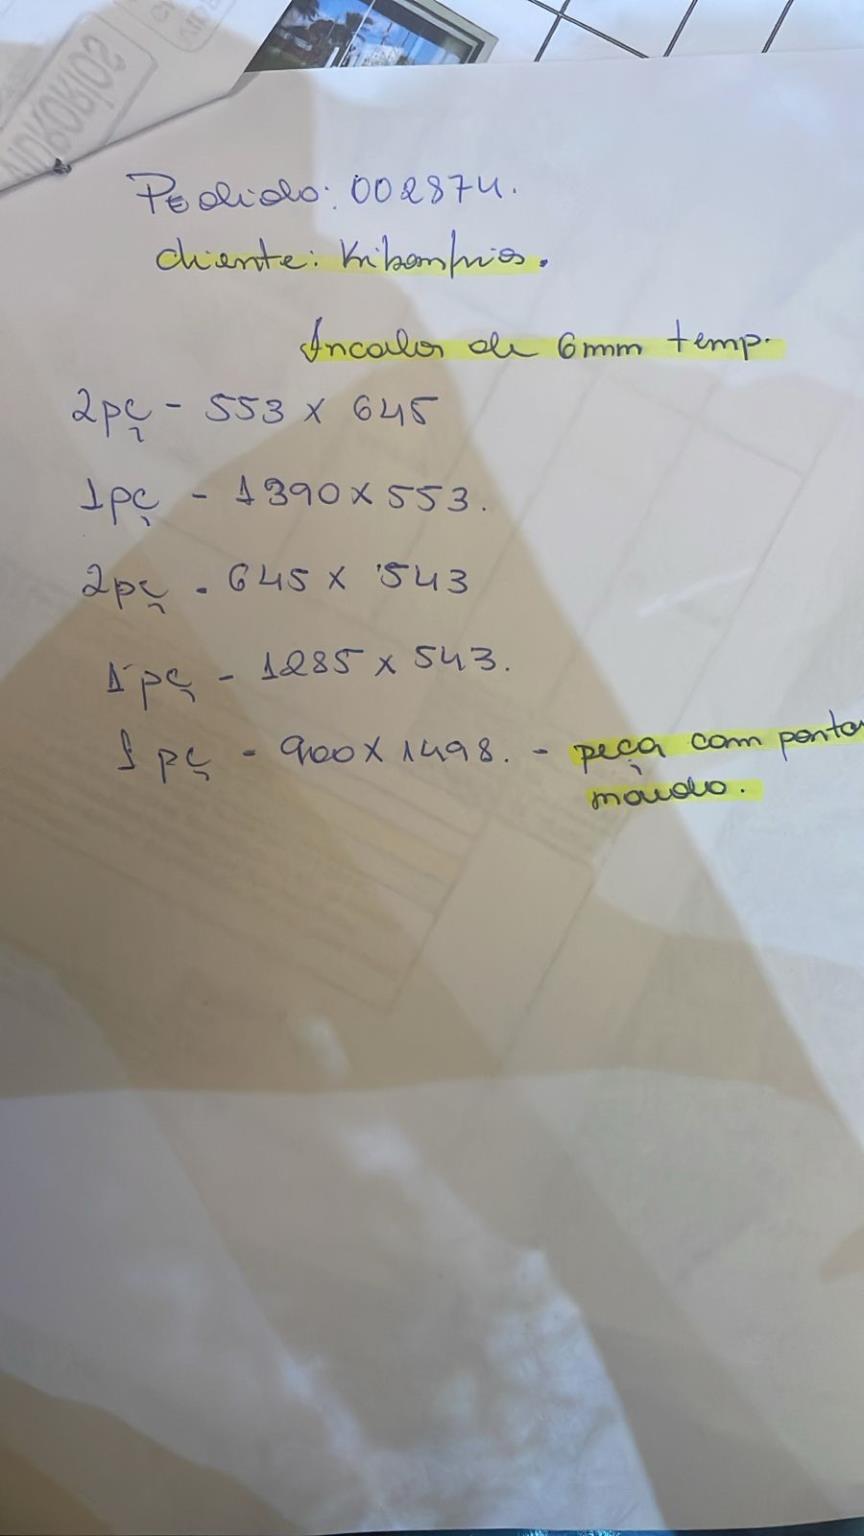 Pedido: 002874.
cliente: Kibonfrios.
Incolor de 6mm temp.
2pç - 553 x 645
1pç - 1390 x 553.
2pç - 645 x 543
1pç - 1285 x 543.
1pç - 900 x 1498. - peça com ponta